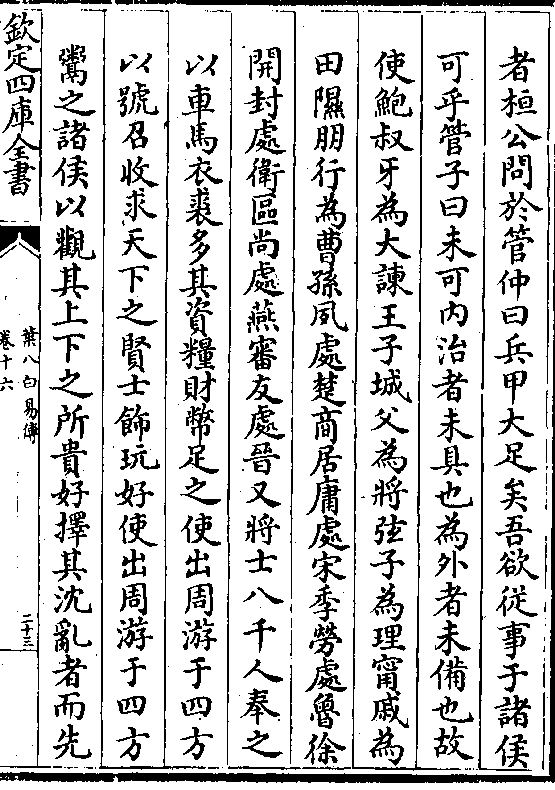 者桓公問於管仲曰兵甲大足矣吾欲従事于諸侯
可乎管子曰未可内治者未具也為外者未備也故
使鮑叔牙為大諫王子城父為將弦子為理甯戚為
田隰朋行為曹孫夙處楚商居庸處宋季勞處魯徐
開封處衛區尚處燕審友處晉又將士八千人奉之
以車馬衣裘多其資糧財幣足之使出周游于四方
以號召收求天下之賢士飾玩好使出周游于四方
鬻之諸侯以觀其上下之所貴好擇其沈亂者而先
欽定四庫全書
葉八白易傳
卷十六
二十三